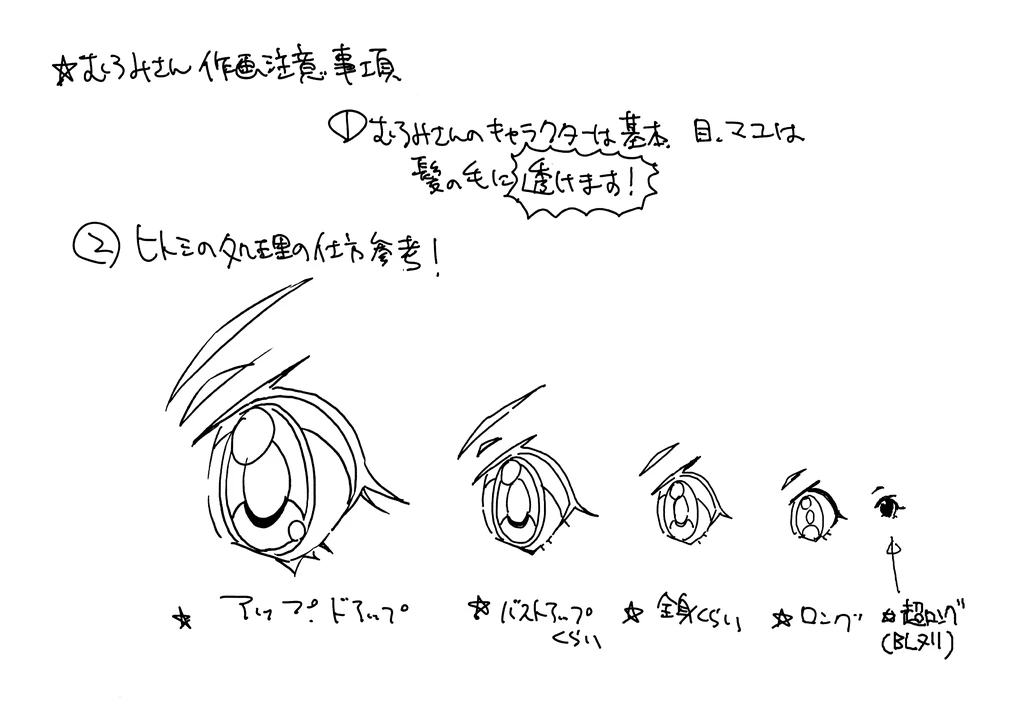 ☆むろみさん作画注意事項
①むろみさんのキャラクターは基本、目、マユは
髪の毛に透けます!
②ヒトミの処理の仕方参考!
☆アップ.ドアップ
☆バストアップ
くらい
☆全身くらい
☆ロング
☆超ロング
(BLヌリ)